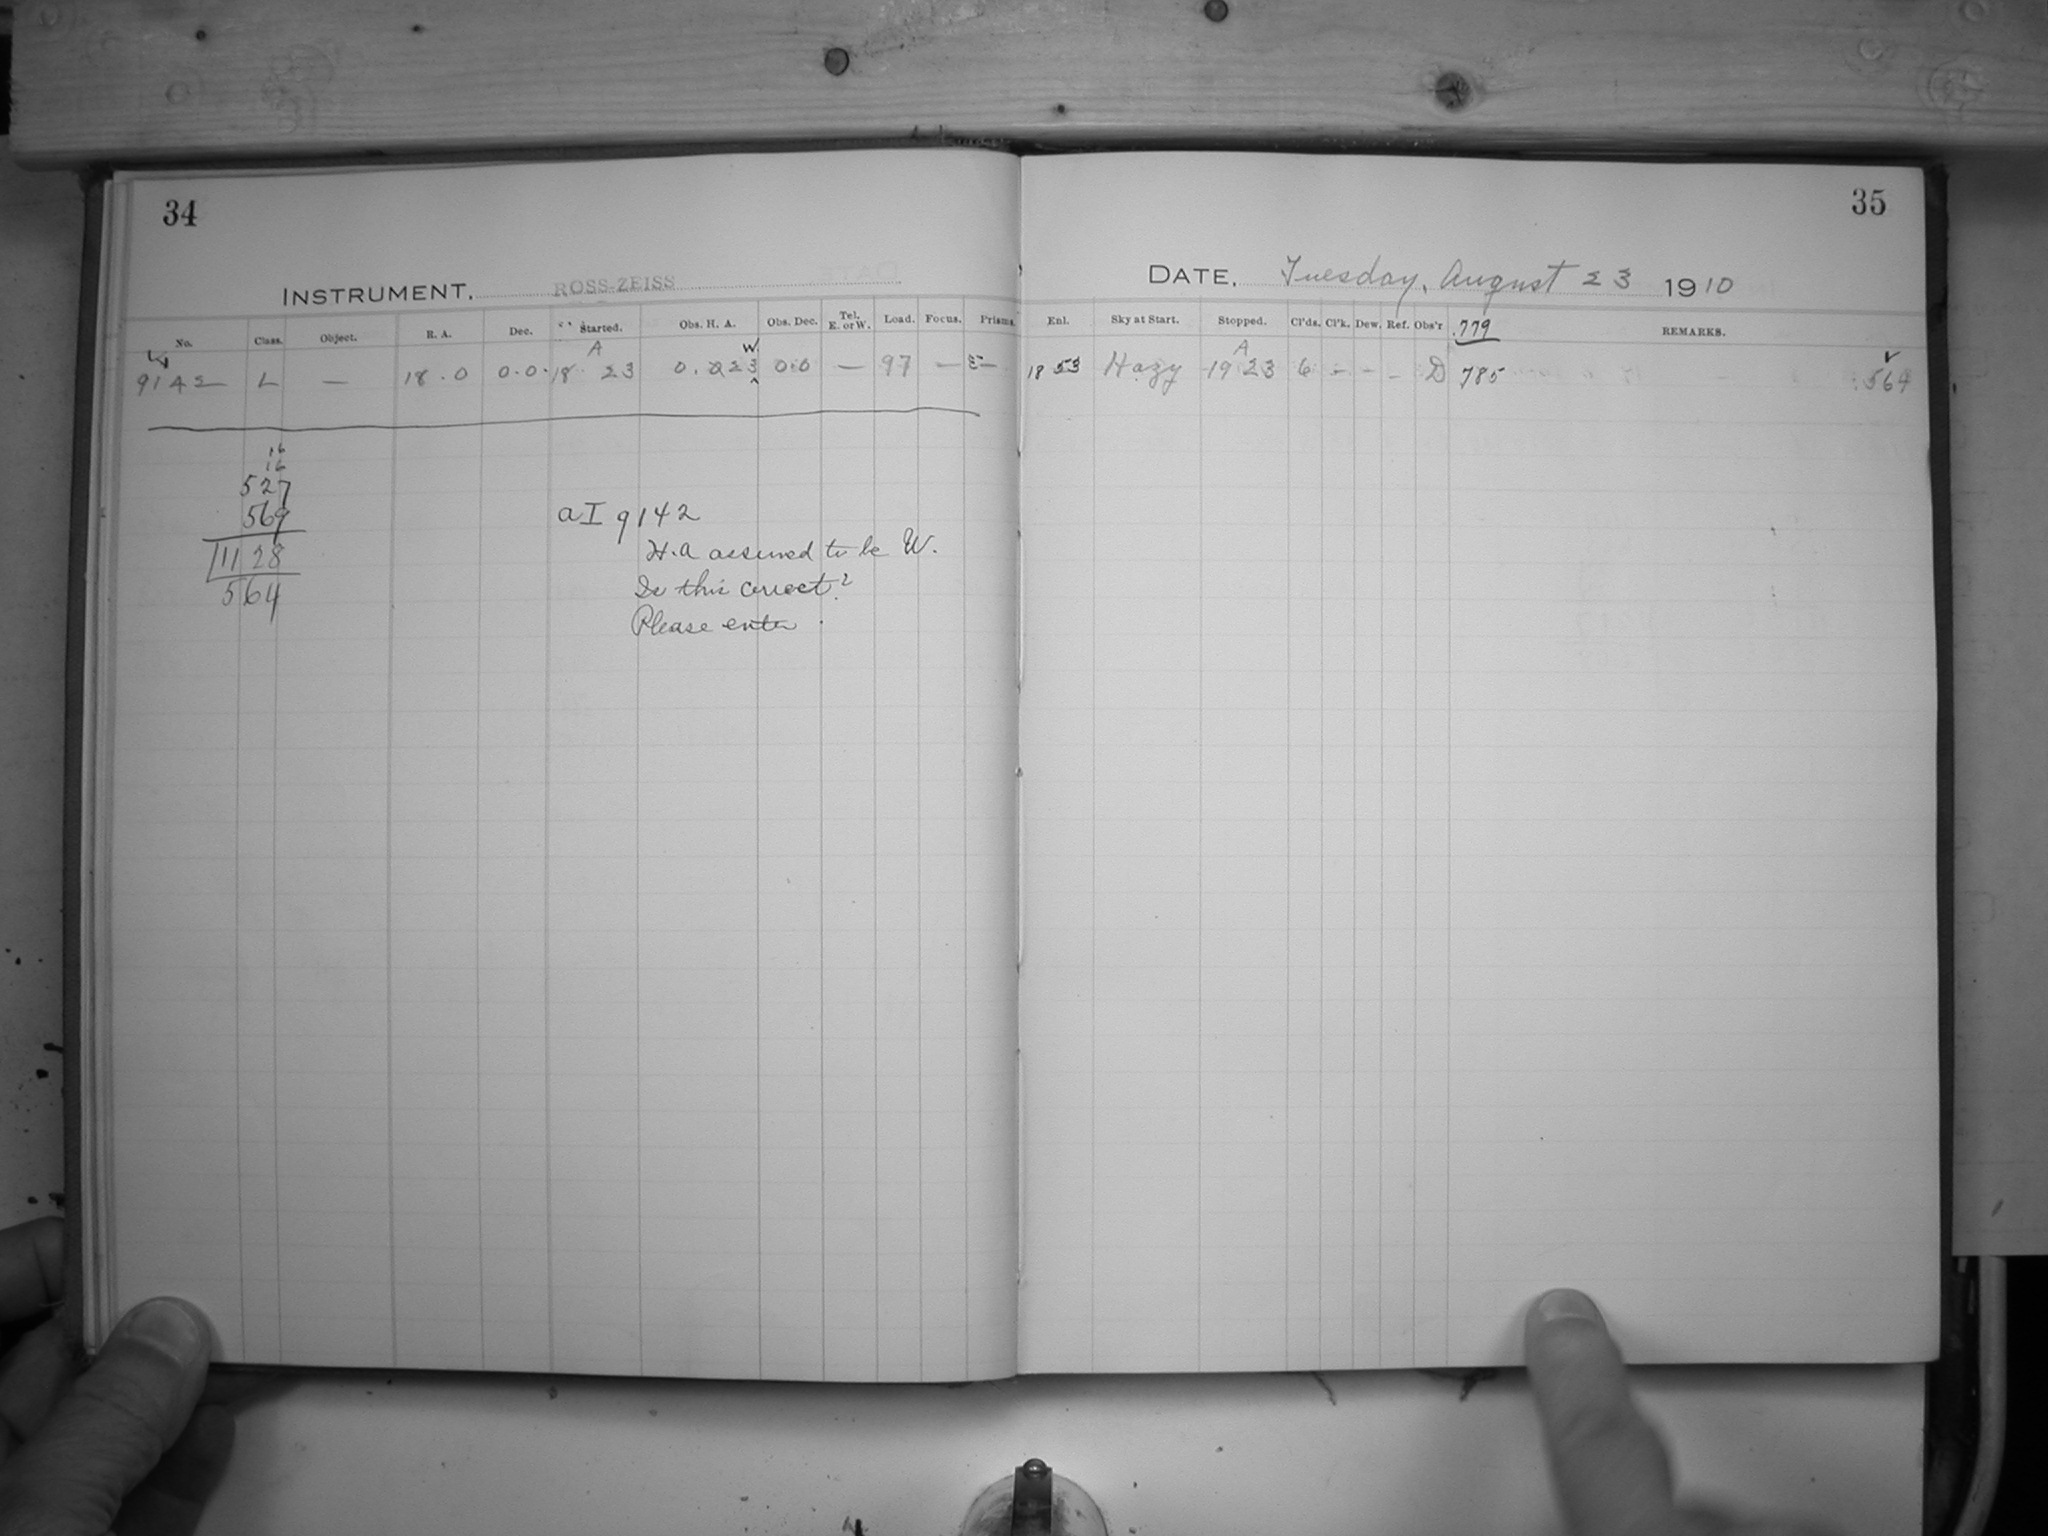 34
INSTRUMENT. ROSS-ZEISS
No. Class. Object. R. A. Dec. Started. Obs. H. A. Obs. Dec. Tel. E. or W. Load. Focus. Prisms.
A W.
9142 L — 18.0 0.0 18 23 0.023 0.0 — 97 — —
16
16
527
569
1128
564
a I 9142
H.A assumed to be W.
Is this correct?
Please enter.
35
DATE. Tuesday, August 23 1910
Enl. Sky at Start. Stopped. Cl'ds. Cl'k. Dew. Ref. Obs'r .779 REMARKS.
A
18 53 Hazy 19 23 6 - - - D 785 .564